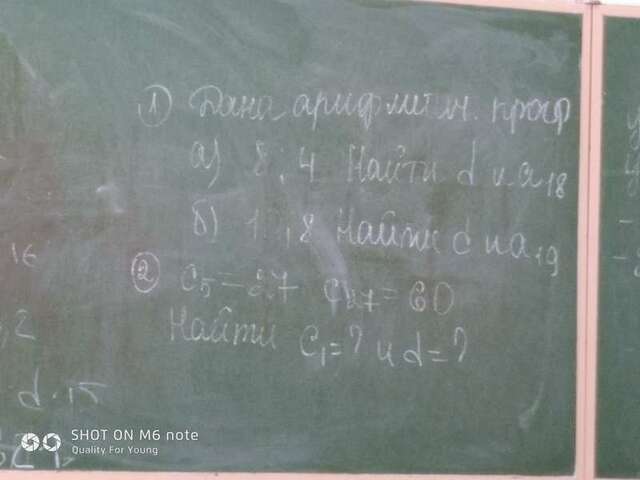 1 Дана арифметич. прогр
а) 8; 4 Найти d и a18
б) 8 Найти d и a19
2 c5=27 c27=60
Найти c1=? и d=?
16
2
d·15
SHOT ON M6 note
Quality For Young